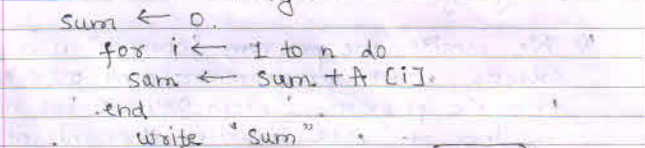 Sum ← 0.
for i ← 1 to n do
sam ← sum + A [i].
end
write "Sum"